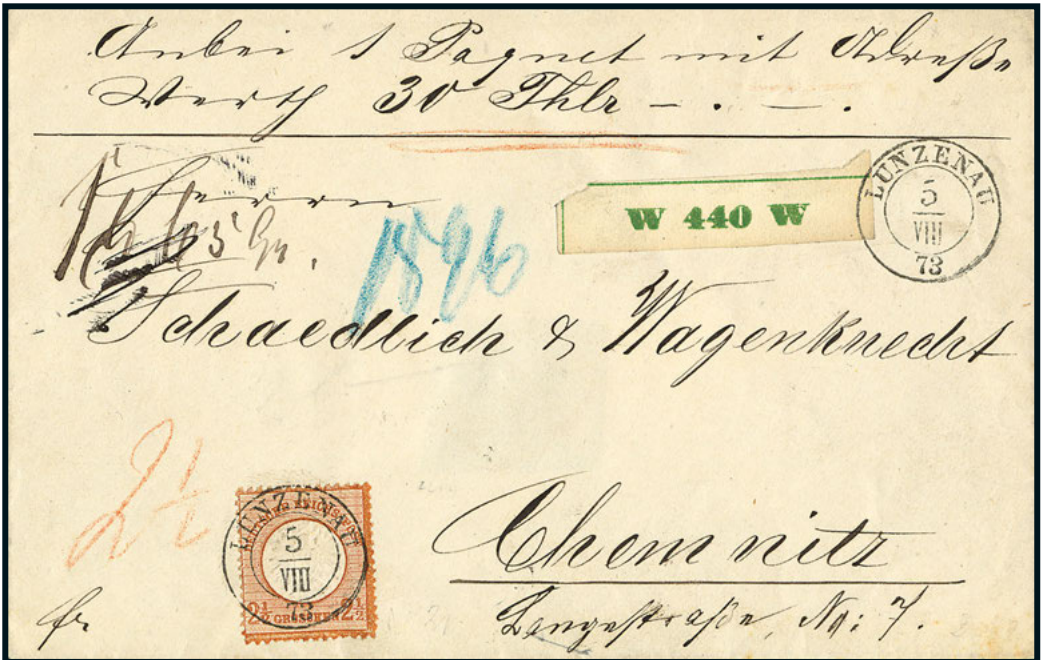 Anbei 1 Paquet mit Adreße
Werth 30 Thlr
Herrn
W 440 W
LUNZENAU
5
VIII
73
5 Gr.
1596
Schaedlich & Wagenknecht
2½
LUNZENAU
5
VIII
73
2½ GROSCHEN 2½
Chemnitz
Langestraße, No: 7.
fr.